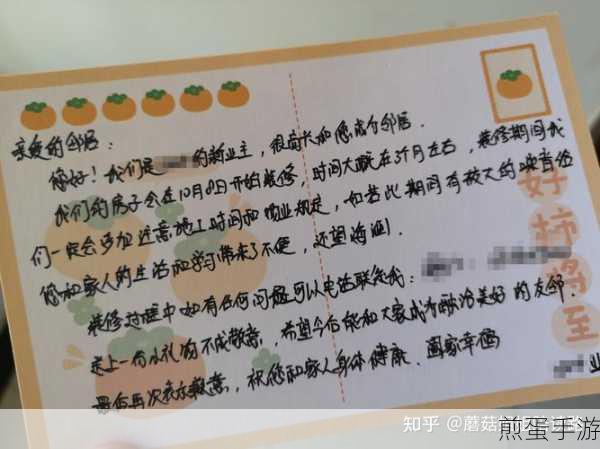 亲爱的邻居：
您好！我们是 的新业主，很高兴和您成为邻居．
我们的房子会在10月8日开始装修，时间大概在3个月左右，装修期间我
们一定会多加注意施工时间和物业规定，如若此期间有较大的噪音给
您和家人的生活和学习带来了不便，还望海涵．
装修过程中如有任何问题可以电话联系我：
送上一份小礼物不成敬意，希望今后能和大家成为融洽美好的友邻．
最后再次表示歉意，祝您和家人身体健康．阖家幸福
业
好
柿
将
至
知乎 @蘑菇
煎蛋手游